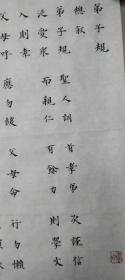 弟子規
總敘
弟子規 聖人訓 首孝弟 次謹信
泛愛衆 而親仁 有餘力 則學文
入則孝
父母呼 應勿緩 父母命 行勿懶